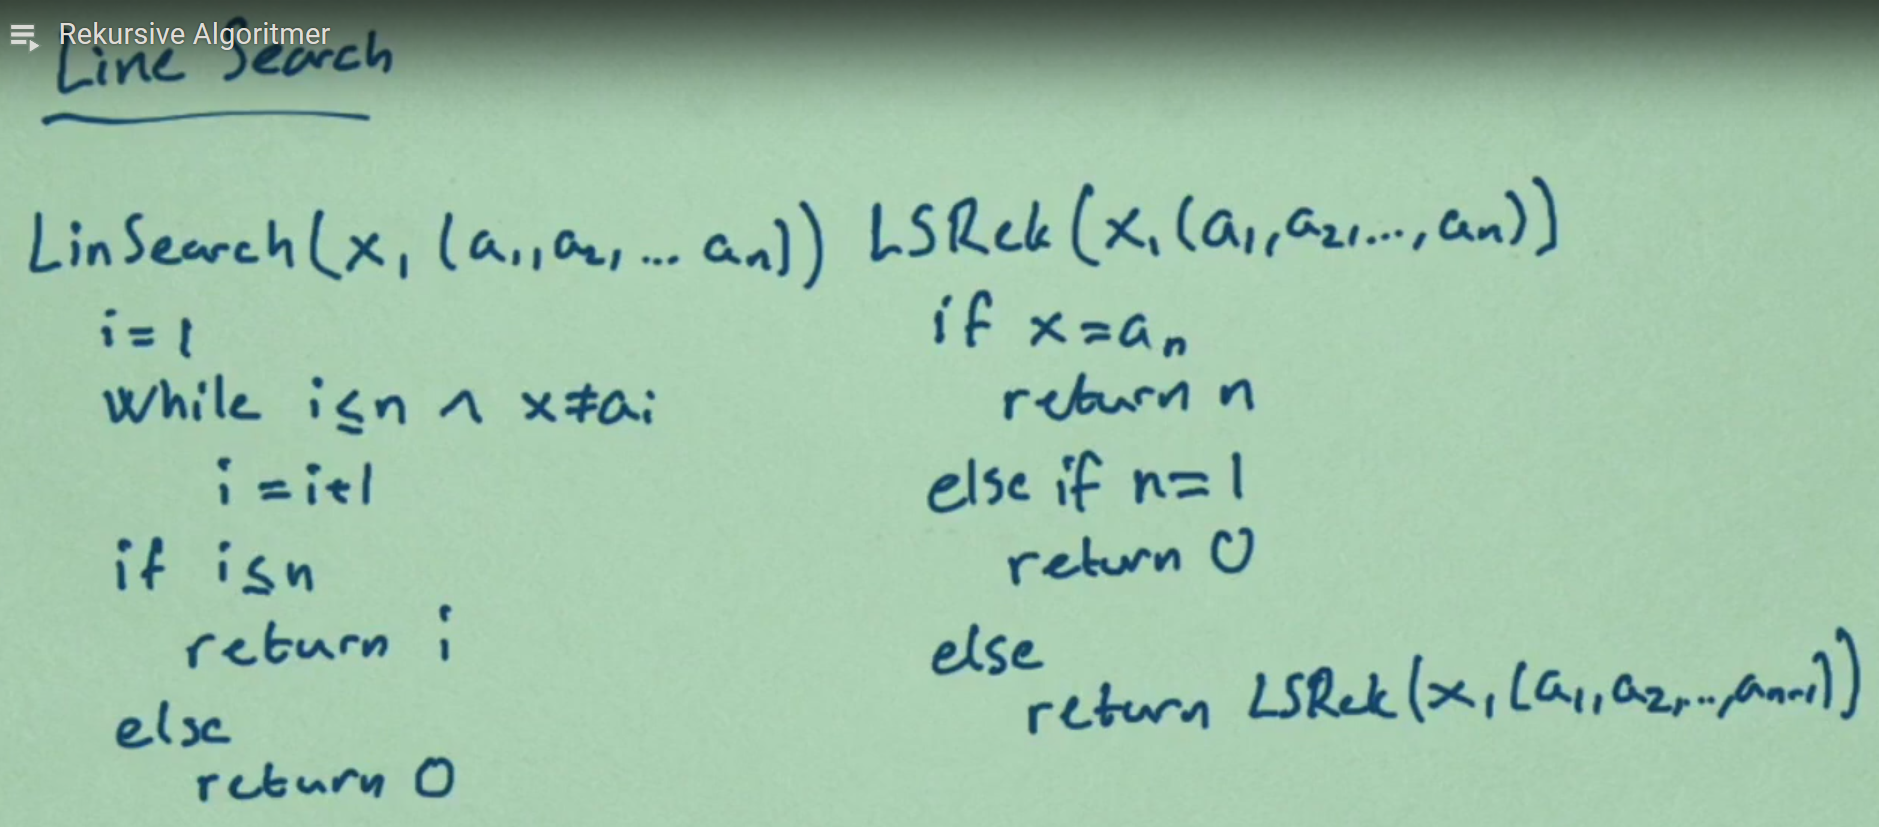 Rekursive Algoritmer
Line Search
LinSearch(x, (a₁, a₂, ... aₙ))
i = 1
while i ≤ n ∧ x ≠ aᵢ
i = i+1
if i ≤ n
return i
else
return 0
LSRek(x, (a₁, a₂, ..., aₙ))
if x = aₙ
return n
else if n = 1
return 0
else
return LSRek(x, (a₁, a₂, ..., aₙ₋₁))